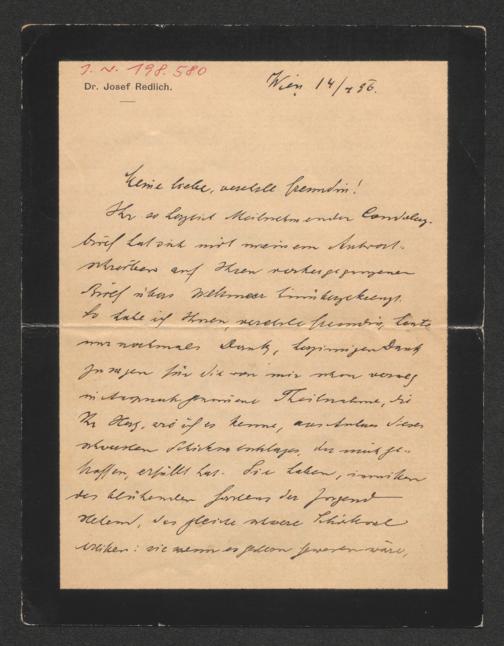 J. N. 198.580
Dr. Josef Redlich.
Wien 14/ 36.
Meine liebe, verehrte Freundin!
Ihr so herzlich theilnehmender Condolenz-
brief hat sich mit meinem Antwort-
schreiben auf Ihren vorhergegangenen
Brief übers Weltmeer hinübergekreuzt.
So habe ich Ihnen, verehrte Freundin, heute
nur nochmals Dank, herzinnigen Dank
zu sagen für die von mir schon
in Anspruch genommene Theilnahme, die
Ihr Herz, wie ich es kenne, aus Anlass dieses
schwersten Schicksalsschlages, der mich ge-
troffen, erfüllt hat. Sie haben, inmitten
des blühenden Gartens der Jugend
stehend, das gleiche schwere Schicksal
erlitten: wie wenn es gestern gewesen wäre,